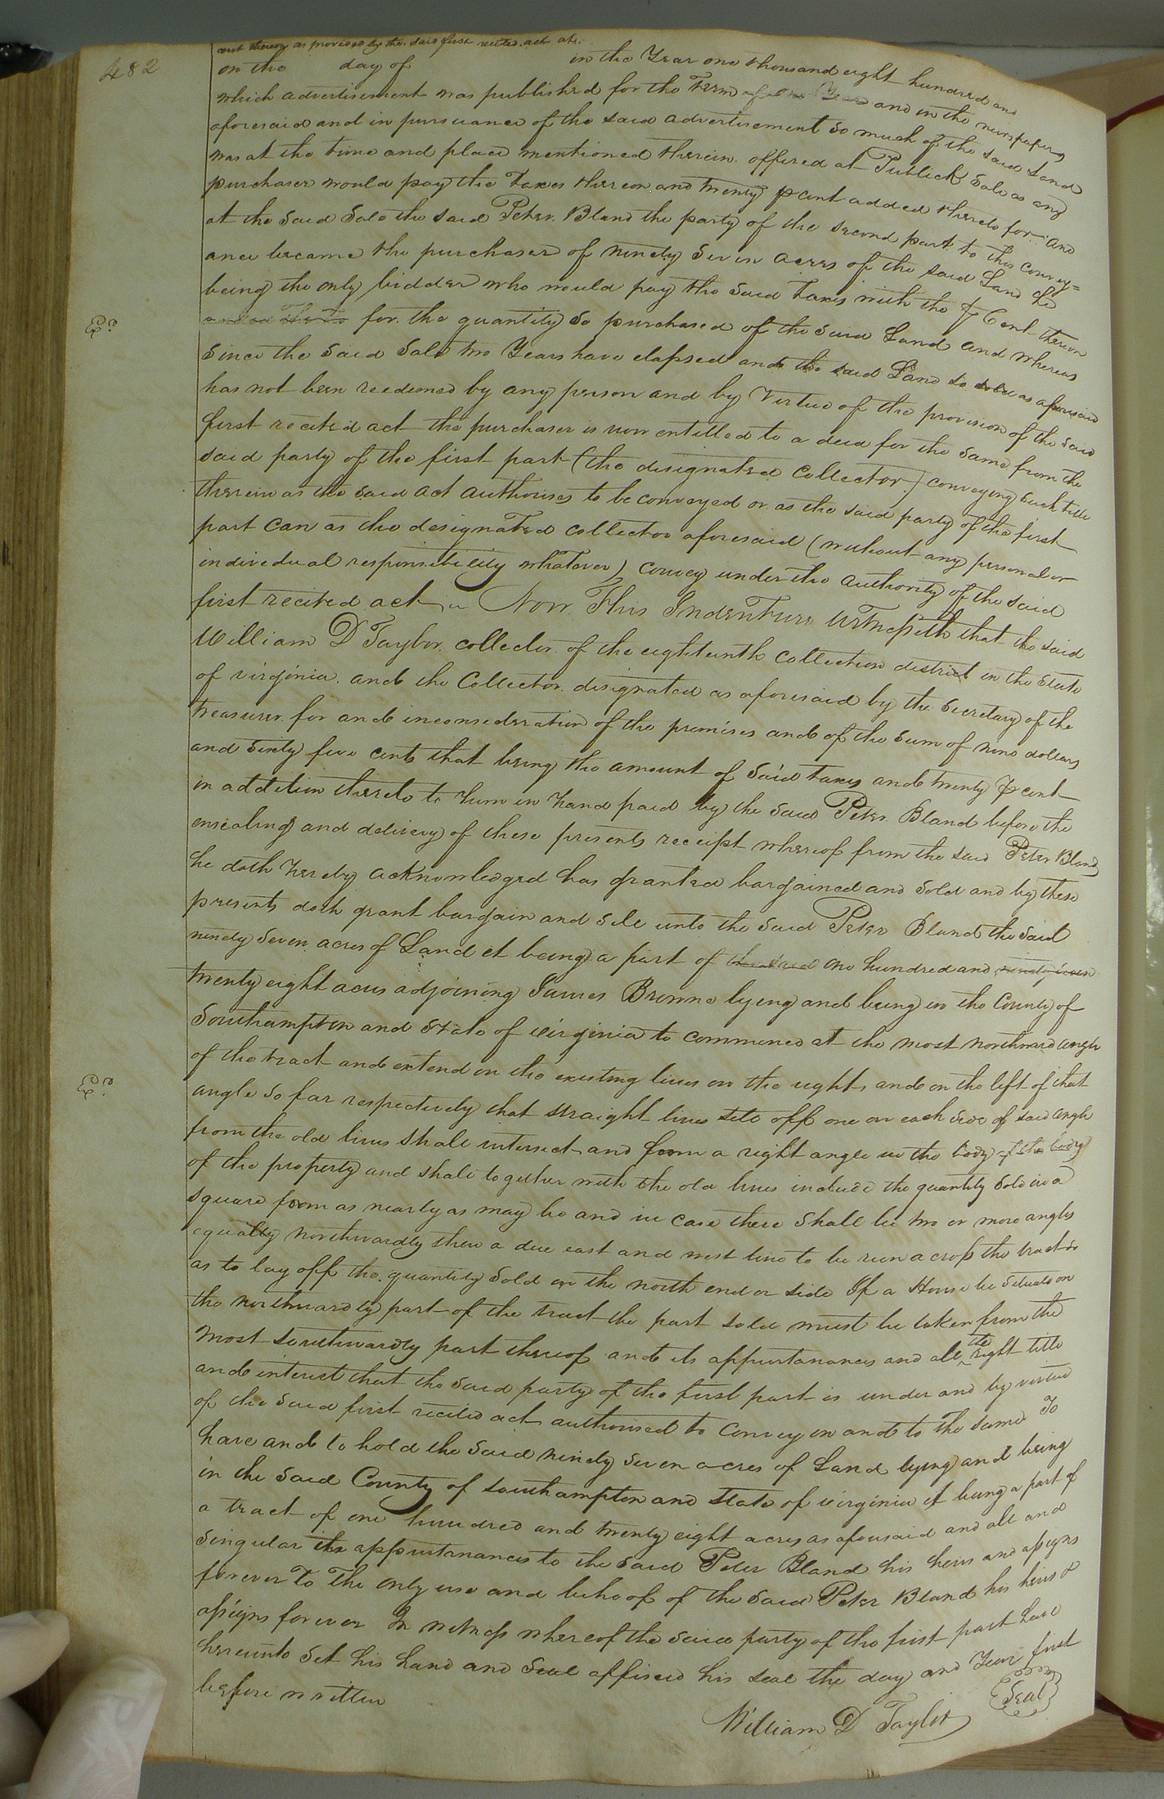 482
cent thereon as provided by the said first recited act at
on the day of in the Year one thousand eight hundred and
which advertisement was published for the Term and in the newspapers
aforesaid and in pursuance of the said advertisement so much of the said Land
was at the time and place mentioned therein offered at Publick Sale as any
purchaser would pay the taxes thereon and twenty pcent added thereto for and
at the said Sale the said Peter Bland the party of the second part to this convey=
ance became the purchaser of ninety Seven acres of the said Land he
being the only bidder who would pay the said taxes with the Cent. thereon
for the quantity so purchased of the said Land and whereas
Since the said Sale two Years have elapsed and the said Land so as aforesaid
has not been redeemed by any person and by Virtue of the provision of the said
first recited act the purchaser is now entitled to a deed for the same from the
said party of the first part (the designated collector) conveying such title
therein as the said act authorises to be conveyed or as the said party of the first
part can as the designated collector aforesaid (without any personal or
individual responsibility whatever) convey under the authority of the said
first recited act Now This Indenture Witnesseth that the said
William D Taylor collector of the eighteenth collection district in the State
of virginia and the Collector designated as aforesaid by the Secretary of the
treasurer for and inconsideration of the premises and of the sum of nine dollars
and sixty five cents that being the amount of said taxes and twenty pcent
in addition thereto to him in hand paid by the said Peter Bland before the
ensealing and delivery of these presents receipt whereof from the said Peter Bland
he doth hereby acknowledged has granted bargained and sold and by these
presents doth grant bargain and sele unto the said Peter Bland the said
ninety Seven acres of Land et being a part of the said one hundred and ninety seven
twenty eight acres adjoining James Browne lying and being in the County of
Southampton and State of virginia to commence at the most northward angle
of the tract and extend on the existing lines on the right and on the left of that
angle so far respectively that straight lines sete off one on each side of said angle
from the old lines shall intersect and form a right angle in the body of the body
of the property and shall together with the old lines include the quantity sold in a
square form as nearly as may be and in case there shall be two or more angles
equally northwardly then a due east and west line to be run across the tract so
as to lay off the quantity sold on the north end or side If a House be situate on
the northwardly part of the tract the part sold must be taken from the
most southwardly part thereof and its appurtanances and all the right title
and interest that the said party of the first part is under and by virtue
of the said first recited act authorised to convey in and to the same To
have and to hold the said ninety Seven acres of Land lying and being
in the said County of Southampton and State of virginia it being a part of
a tract of one hundred and twenty eight acres as aforesaid and all and
singular its appurtanances to the said Peter Bland his heirs and assigns
forever To the only use and behoof of the said Peter Bland his heirs &
assigns forever In witness whereof the said party of the first part have
hereunto set his hand and seal affixed his seal the day and Year first
before written
William D Taylor Seal